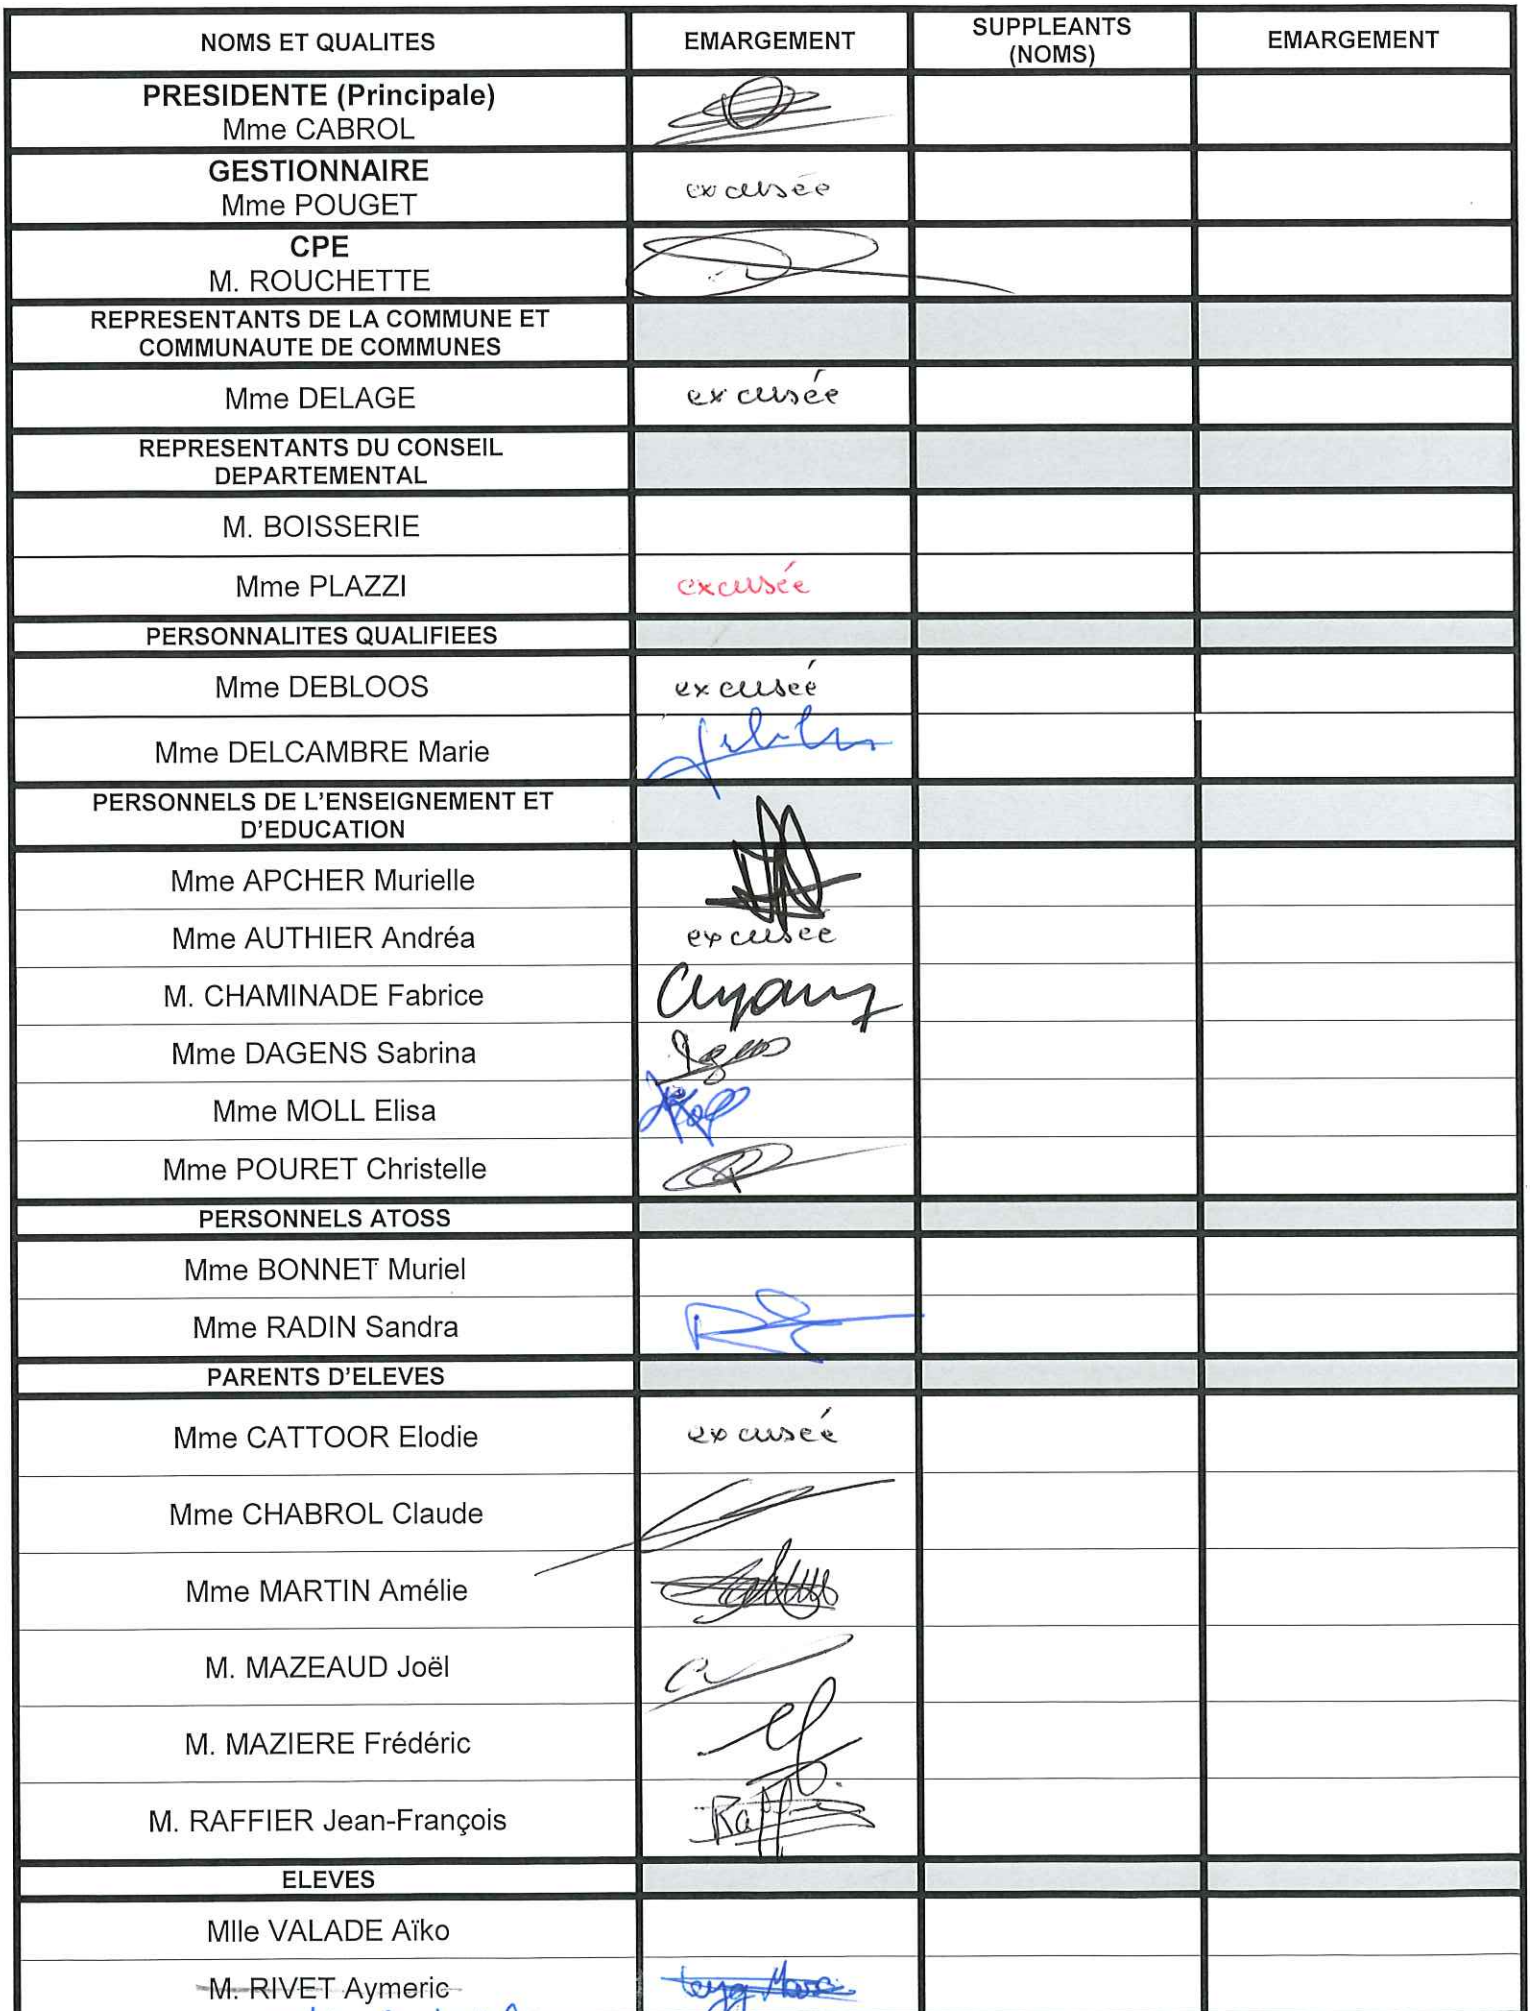 NOMS ET QUALITES EMARGEMENT SUPPLEANTS (NOMS) EMARGEMENT
PRESIDENTE (Principale)
Mme CABROL
GESTIONNAIRE
Mme POUGET excusée
CPE
M. ROUCHETTE
REPRESENTANTS DE LA COMMUNE ET
COMMUNAUTE DE COMMUNES
Mme DELAGE excusée
REPRESENTANTS DU CONSEIL
DEPARTEMENTAL
M. BOISSERIE
Mme PLAZZI excusée
PERSONNALITES QUALIFIEES
Mme DEBLOOS excusée
Mme DELCAMBRE Marie
PERSONNELS DE L'ENSEIGNEMENT ET
D'EDUCATION
Mme APCHER Murielle
Mme AUTHIER Andréa excusée
M. CHAMINADE Fabrice
Mme DAGENS Sabrina
Mme MOLL Elisa
Mme POURET Christelle
PERSONNELS ATOSS
Mme BONNET Muriel
Mme RADIN Sandra
PARENTS D'ELEVES
Mme CATTOOR Elodie excusée
Mme CHABROL Claude
Mme MARTIN Amélie
M. MAZEAUD Joël
M. MAZIERE Frédéric
M. RAFFIER Jean-François
ELEVES
Mlle VALADE Aïko
M. RIVET Aymeric